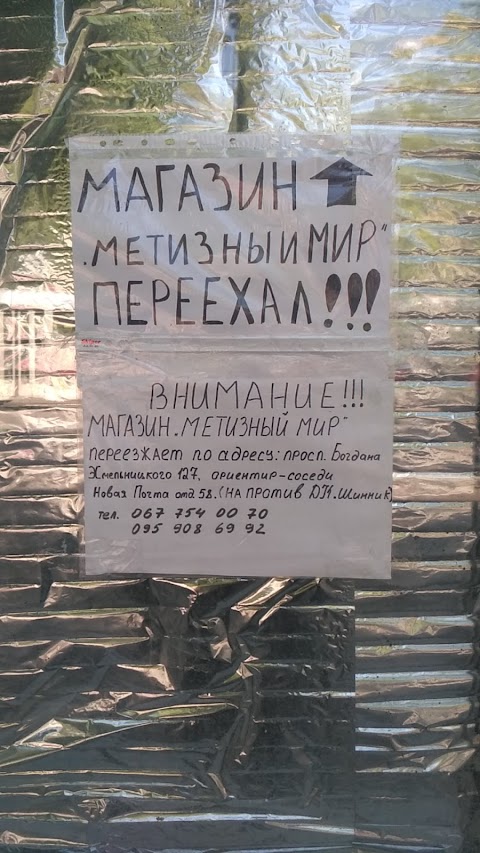 МАГАЗИН
„МЕТИЗНЫЙ МИР"
ПЕРЕЕХАЛ!!!
ВНИМАНИЕ!!!
МАГАЗИН „МЕТИЗНЫЙ МИР"
переезжает по адресу: просп. Богдана
Хмельницкого 127, ориентир-соседи
Новая Почта отд 58. (НА ПРОТИВ ДК. Шинник)
тел. 067 754 00 70
095 908 69 92